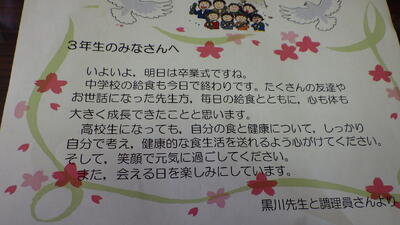 ３年生のみなさんへ
いよいよ，明日は卒業式ですね。
中学校の給食も今日で終わりです。たくさんの友達や
お世話になった先生方，毎日の給食とともに，心も体も
大きく成長できたことと思います。
高校生になっても，自分の食と健康について，しっかり
自分で考え，健康的な食生活を送れるよう心がけてください。
そして，笑顔で元気に過ごしてください。
また，会える日を楽しみにしています。
黒川先生と調理員さんより